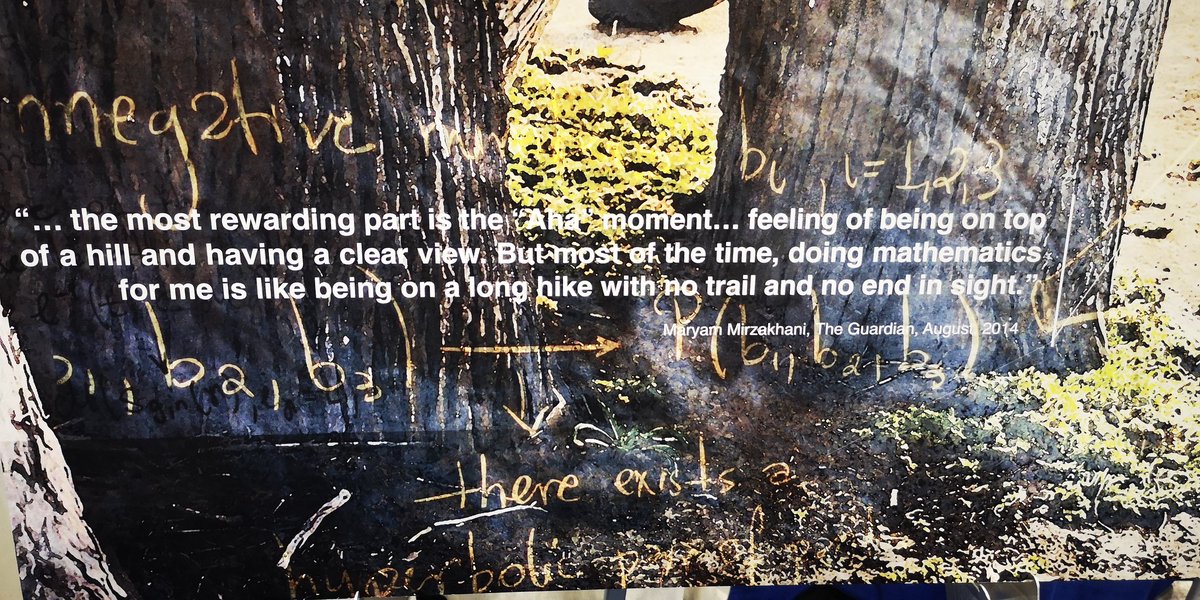 neg2tive
bi, i=1,2,3
“... the most rewarding part is the “Aha” moment... feeling of being on top
of a hill and having a clear view. But most of the time, doing mathematics
for me is like being on a long hike with no trail and no end in sight.”
Maryam Mirzakhani, The Guardian, August, 2014
b2, b3) → P(b1, b2, b3)
there exists a
hyperbolic